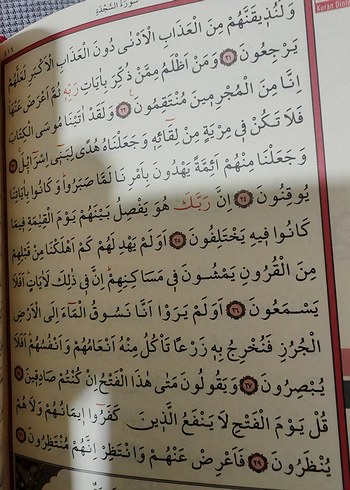 سورة السجدة
وَلَنُذ۪يقَنَّهُمْ مِنَ الْعَذَابِ الْاَدْنٰى دُونَ الْعَذَابِ الْاَكْبَرِ لَعَلَّهُمْ
يَرْجِعُونَ ٢١ وَمَنْ اَظْلَمُ مِمَّنْ ذُكِّرَ بِاٰيَاتِ رَبِّه۪ ثُمَّ اَعْرَضَ عَنْهَا
اِنَّا مِنَ الْمُجْرِم۪ينَ مُنْتَقِمُونَ ٢٢ وَلَقَدْ اٰتَيْنَا مُوسَى الْكِتَابَ
فَلَا تَكُنْ ف۪ي مِرْيَةٍ مِنْ لِقَٓائِه۪ وَجَعَلْنَاهُ هُدًى لِبَن۪ٓي اِسْرَٓائ۪لَ ٢٣
وَجَعَلْنَا مِنْهُمْ اَئِمَّةً يَهْدُونَ بِاَمْرِنَا لَمَّا صَبَرُوا وَكَانُوا بِاٰيَاتِنَا
يُوقِنُونَ ٢٤ اِنَّ رَبَّكَ هُوَ يَفْصِلُ بَيْنَهُمْ يَوْمَ الْقِيٰمَةِ ف۪يمَا
كَانُوا ف۪يهِ يَخْتَلِفُونَ ٢٥ اَوَلَمْ يَهْدِ لَهُمْ كَمْ اَهْلَكْنَا مِنْ قَبْلِهِمْ
مِنَ الْقُرُونِ يَمْشُونَ ف۪ي مَسَاكِنِهِمْ اِنَّ ف۪ي ذٰلِكَ لَاٰيَاتٍ اَفَلَا
يَسْمَعُونَ ٢٦ اَوَلَمْ يَرَوْا اَنَّا نَسُوقُ الْمَٓاءَ اِلَى الْاَرْضِ
الْجُرُزِ فَنُخْرِجُ بِه۪ زَرْعًا تَاْكُلُ مِنْهُ اَنْعَامُهُمْ وَاَنْفُسُهُمْ اَفَلَا
يُبْصِرُونَ ٢٧ وَيَقُولُونَ مَتٰى هٰذَا الْفَتْحُ اِنْ كُنْتُمْ صَادِق۪ينَ ٢٨
قُلْ يَوْمَ الْفَتْحِ لَا يَنْفَعُ الَّذ۪ينَ كَفَرُٓوا ا۪يمَانُهُمْ وَلَا هُمْ
يُنْظَرُونَ ٢٩ فَاَعْرِضْ عَنْهُمْ وَانْتَظِرْ اِنَّهُمْ مُنْتَظِرُونَ ٣٠